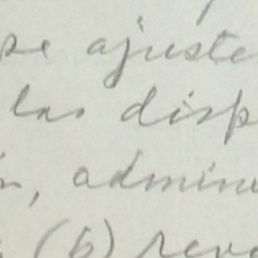 se ajuste
las disp
n, admin
(b) reve